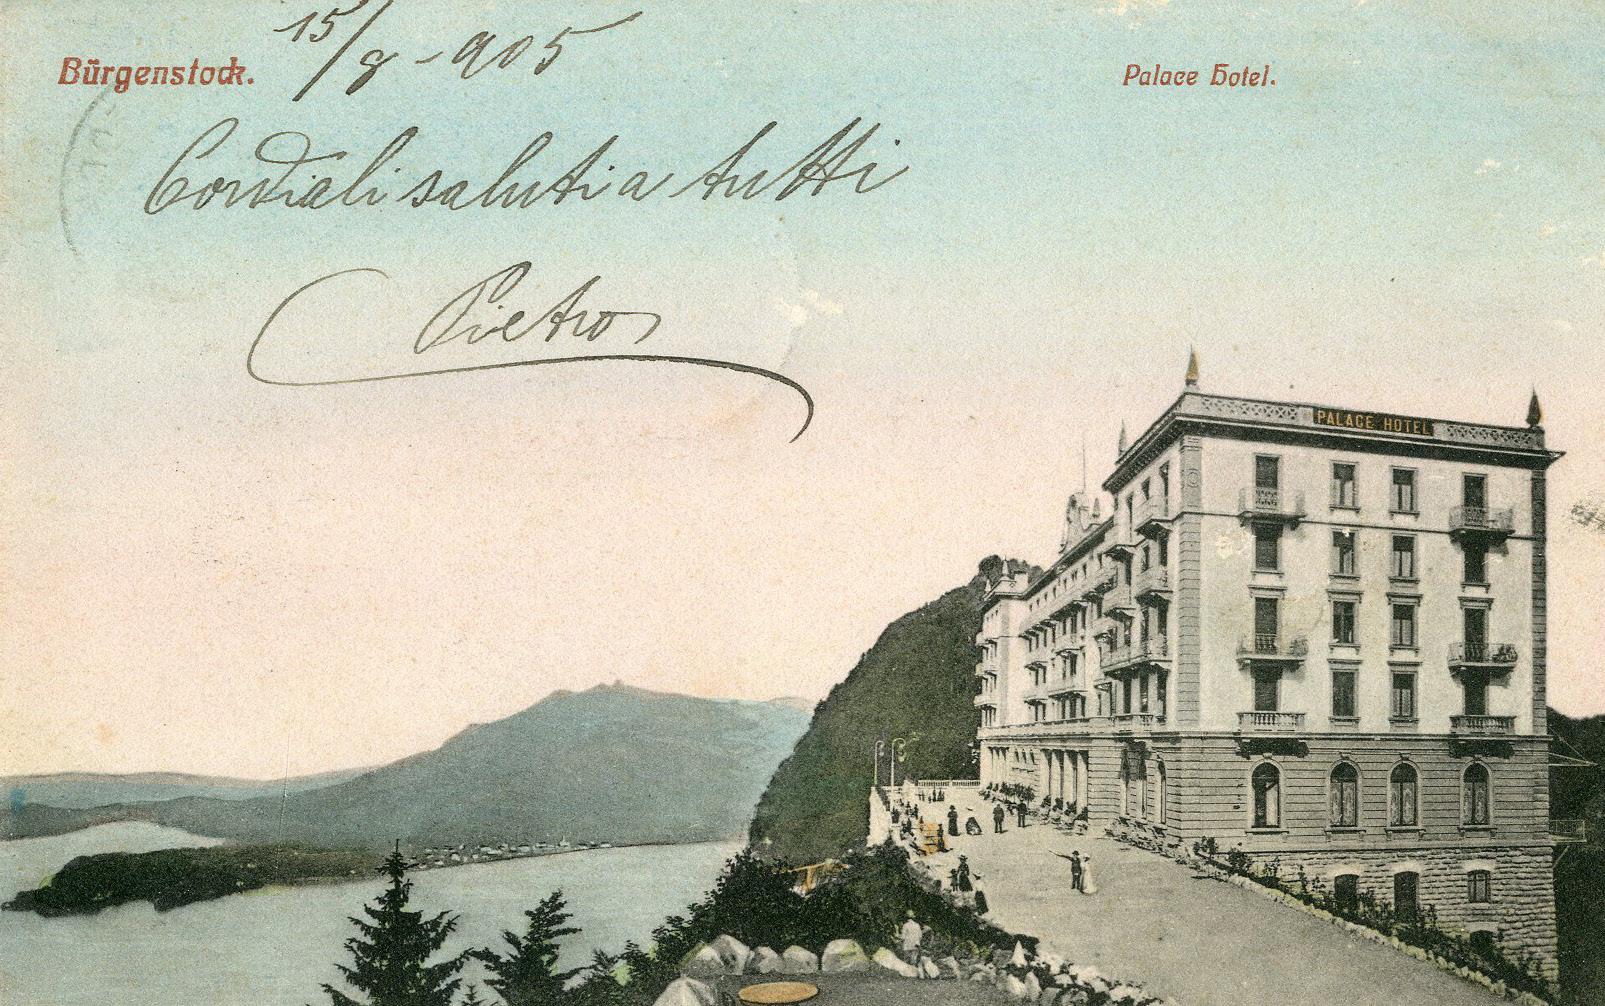 15/8-905
Bürgenstock.
Palace Hotel.
Cordiali saluti a tutti
Pietro
PALACE HOTEL